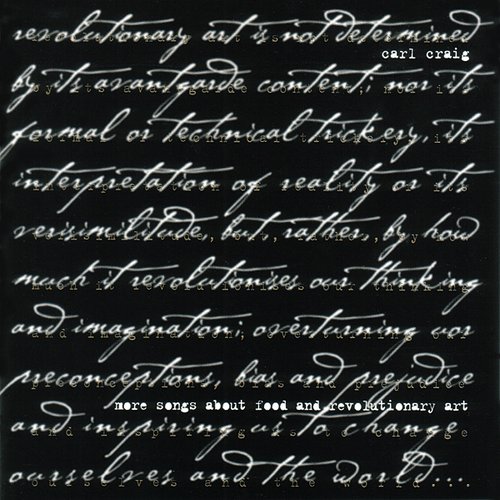 revolutionary art is not determined
carl craig
by its avantgarde content; nor its
formal or technical trickery, its
interpretation of reality or its
verisimilitude, but, rather, by how
much it revolutionises our thinking
and imagination; overturning our
preconceptions, bias and prejudice
more songs about food and revolutionary art
and inspiring us to change
ourselves and the world....